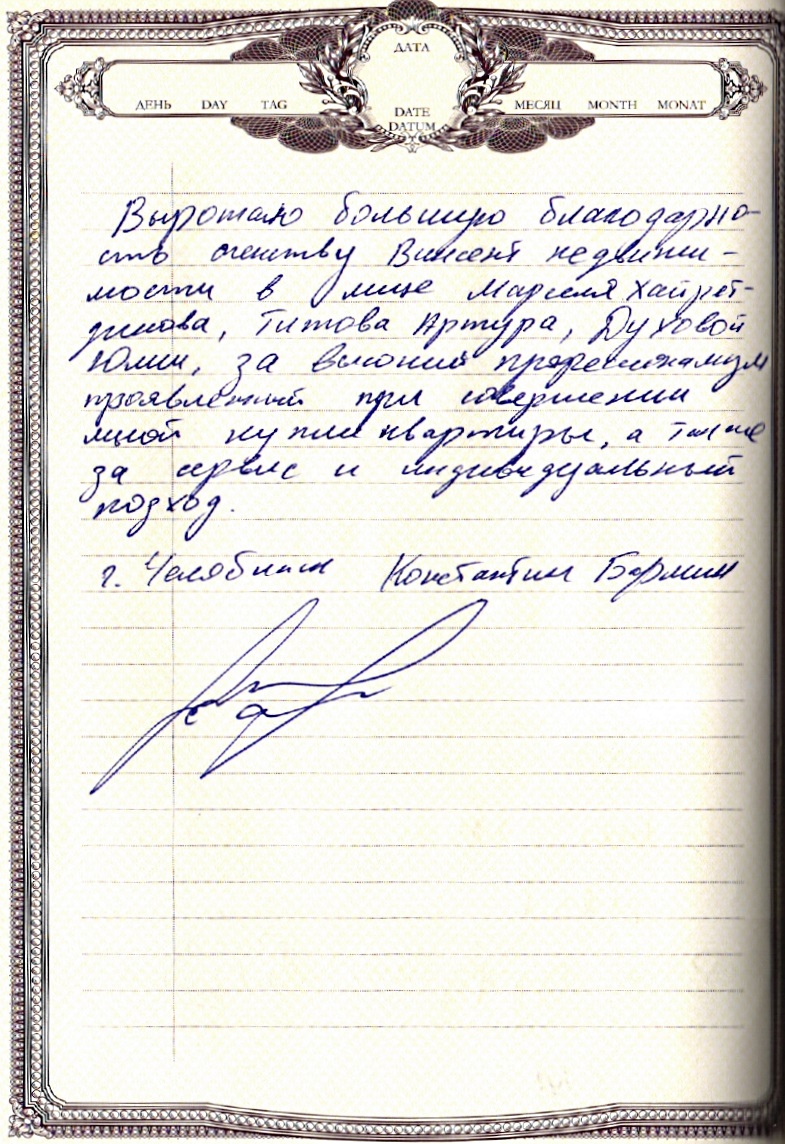 ДАТА
ДЕНЬ DAY TAG
DATE
DATUM
МЕСЯЦ MONTH MONAT
Выражаю большую благодарно-
сть агенству Винсент недвижи-
мости в лице Марселя Хайрет-
динова, Титова Артура, Духовой
Юлии, за высокий професионализм
проявленный при совершении
мной купли квартиры, а также
за сервис и индивидуальный
подход.
г. Челябинск Константин Бармин